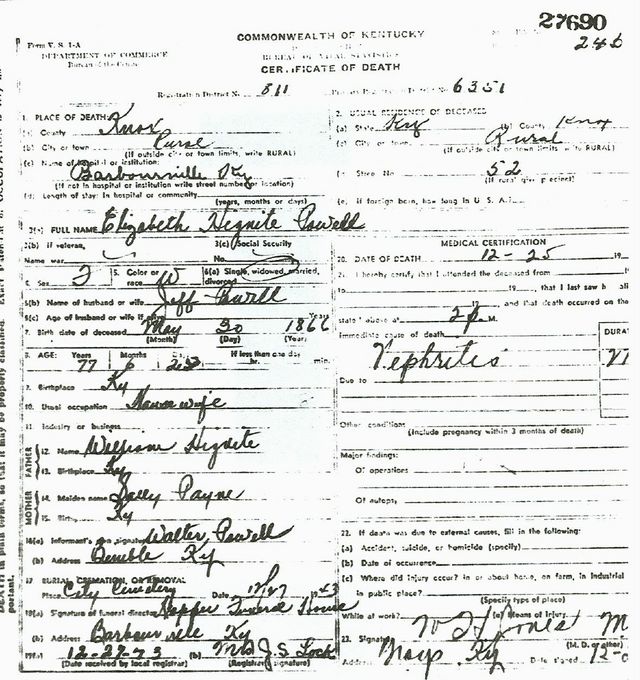 27690
Form V. S. 1-A
DEPARTMENT OF COMMERCE
Bureau of the Census
COMMONWEALTH OF KENTUCKY
BUREAU OF VITAL STATISTICS
CERTIFICATE OF DEATH
Registration District No. 811
6351
1. PLACE OF DEATH:
(a) County Knox
(b) City or town Rural
(If outside city or town limits, write RURAL)
(c) Name of hospital or institution:
Barbourville Ky
(If not in hospital or institution write street number or location)
(d) Length of stay: In hospital or community
(years, months or days)
2. USUAL RESIDENCE OF DECEASED
(a) State Ky (b) County Knox
(c) City or town Rural
(If outside city or town limits, write RURAL)
Street No. 52
(If rural give precinct)
(e) If foreign born, how long in U. S. A.?
3(a) FULL NAME Elizabeth Hignite Powell
3(b) If veteran,
Name war
3(c) Social Security
No.
Sex F 5. Color or race W 6(a) Single, widowed, married, divorced
6(b) Name of husband or wife Jeff Powell
6(c) Age of husband or wife if alive Years
7. Birth date of deceased May 30 1866
(Month) (Day) (Year)
8. AGE: Years Months If less than one day
77 6 hr. min.
9. Birthplace Ky
10. Usual occupation Housewife
11. Industry or business
FATHER
12. Name Hignite
13. Birthplace Ky
MOTHER
14. Maiden name Sally Payne
15. Birthp. Ky
16(a) Informant's own signature Walter Powell
(b) Address Bimble Ky
17 BURIAL, CREMATION, OR REMOVAL
Place City Cemetery Date 12/27 1943
18(a) Signature of funeral director Hopper Funeral House
(b) Address Barbourville Ky
19(a) 12-29-43 (b) Mrs J. S. Lock
(Date received by local registrar) (Registrar's signature)
MEDICAL CERTIFICATION
20. DATE OF DEATH 12-25 19
21. I hereby certify that I attended the deceased from
to 19, that I last saw h alive
19, and that death occurred on the
stated above at 2 P. M.
Immediate cause of death
DURAT
Nephritis
Due to
Other conditions
(Include pregnancy within 3 months of death)
Major findings:
Of operations
Of autopsy
22. If death was due to external causes, fill in the following:
(a) Accident, suicide, or homicide (specify)
(b) Date of occurrence
(c) Where did injury occur? In or about home, on farm, in industrial
in public place?
(Specify type of place)
While at work? (e) Means of injury
23. Signature W H Jones M
(M. D. or other)
Address Ky Date signed 12-